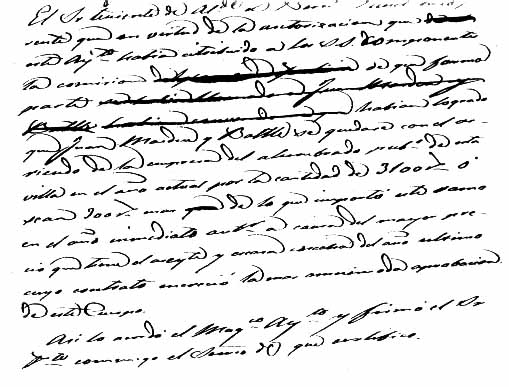 El Sr. teniente de Al
sente que en virtud de la autorizacion que
este Ayto. habia atribuido a los S.S. componentes
la comision de que forma
parte
habian logrado
que Juan Maden y Batlle se quedara con el ar-
riendo de la empresa del alumbrado pubco. de esta
villa en el año actual por la cantidad de 3100 rs. o
sean 900 rs. mas de lo que importó este ramo
en el año inmediato antr. a causa del mayor pre-
cio que tiene el aceyte y escasa cosecha del año ultimo
cuyo contrato mereció la mas aprobacion
de este Cuerpo.
Asi lo acordó el Magco. Ayto. y firmó el Sr.
Pte. conmigo el Secrio. de que certifico.